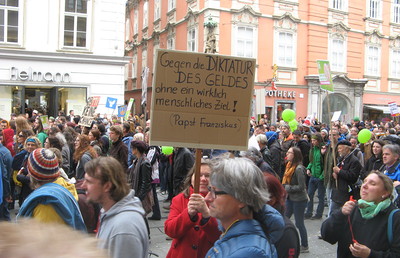 Heimann
APOTHEKE
Gegen die DIKTATUR
DES GELDES
ohne ein wirklich
menschliches Ziel!
(Papst Franziskus)